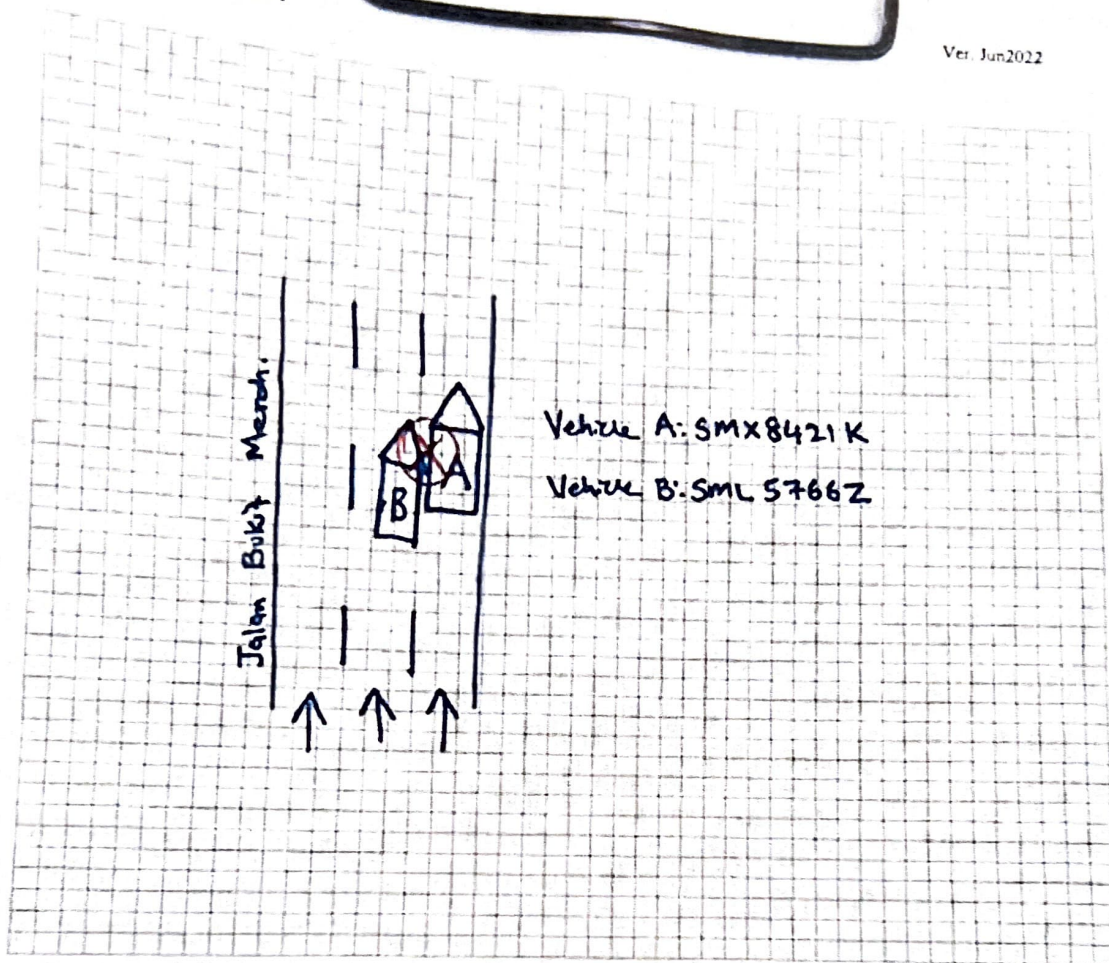 Ver. Jun2022
Jalan Bukit Merah.
Vehicle A: SMX8421K
Vehicle B: SML5766Z
A
B